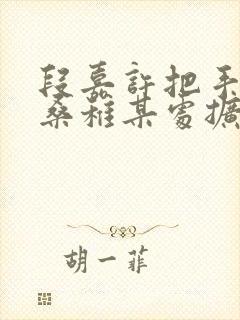 段嘉許把手
桑稚某處擴
胡一菲